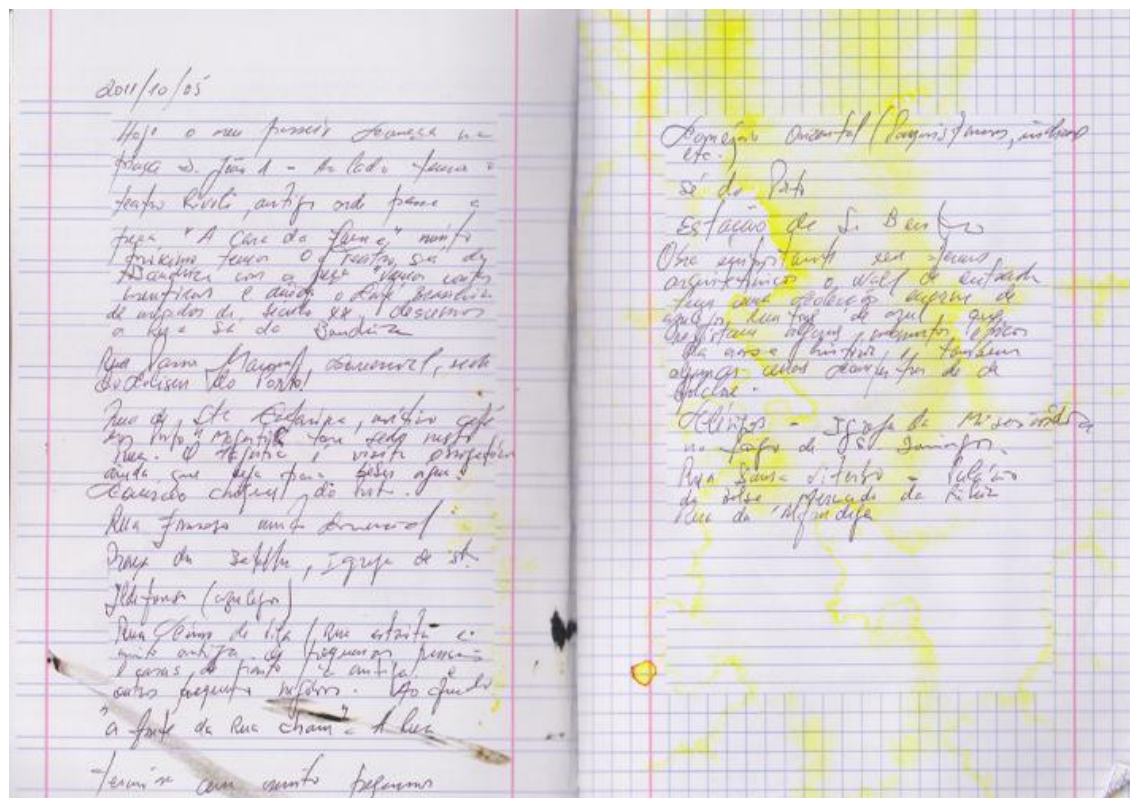 2011/10/05
Hoje o meu passeio começa na
praça D. João I - Ao lado temos o
teatro Rivoli, antigo onde passa a
peça "A Casa da", muito
próximo temos o teatro sá da
Bandeira com a peça "vamos contar
mentiras" e ainda o Café Brasileira
do século XX descemos
a Rua Sá da Bandeira
Rua Passos Manuel, comercial,
Coliseu do Porto!
Rua de Sta Catarina, mítico café
do Porto "Majestic" tem sede nesta
rua. O Majestic é visita obrigatória
ainda que seja para beber água!
do Porto.
Rua Formosa muito comercial
Praça da Batalha, Igreja de St.
Ildefonso (azulejos)
Rua Cimo de Vila (Rua estreita e
muito antiga de pequenas pensões
e casas de já antigas e
outros pequenos negócios. Ao fundo
"a fonte da Rua Cham" A Rua
termina com muito pequenos
Comércio Oriental (Paquistaneses, indianos
etc.)
Sé do Porto
Estação de S. Bento
Obra importante em termos
arquitetónicos o Wall de entrada
tem uma colecção enorme de
azulejos de azul que
registam alguns momentos épicos
da nossa história e também
algumas cenas de
- Igreja da Misericórdia
no largo de S. Domingos.
Rua Sousa Viterbo - Palácio
da Bolsa Mercado
Rua da Alfândega